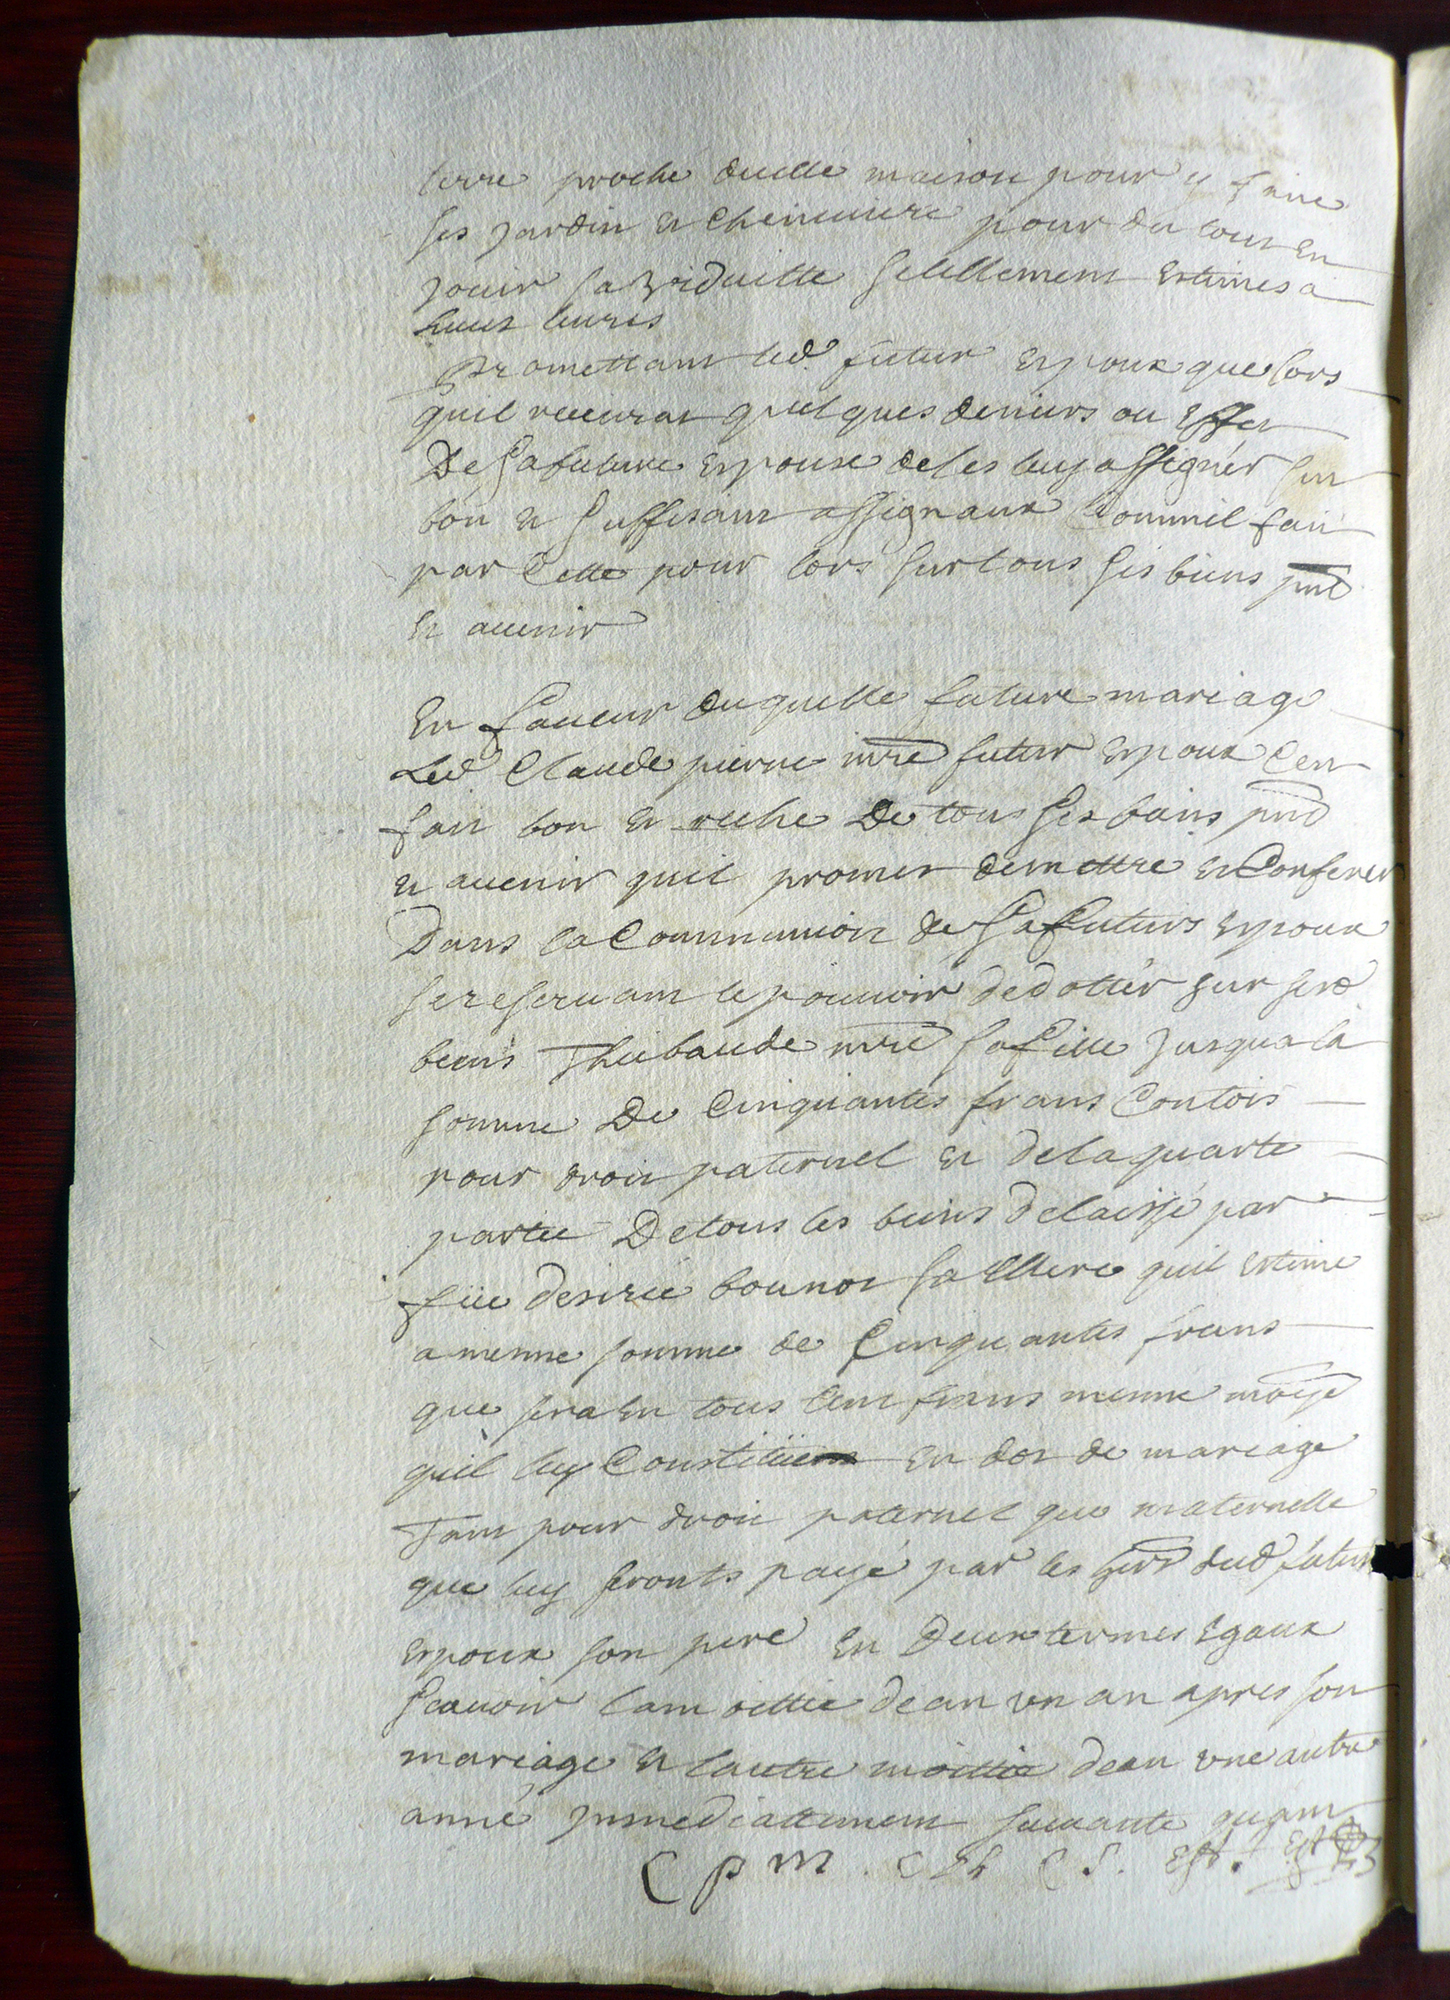 terre proche duelle maison pour y faire
ses jardin et cheneuiere pour du tout en
jouir sa viduitte seullement estimes a
huict liures
Promettant led. futur espoux que lors
quil receurat quelques deniers ou effet
De sa future espouse de les luy assigner sur
bon et suffisant assignaux comme il fait
par cette pour lors sur tous ses biens pnt
et auenir
En faueur duquelle future mariage
Led Claude pierre mre futur espoux cen
fait bon et riche De tous ses bains pnt
et auenir quil promet de mettre et Conferer
Dans la Communion de sa futurs espoux
se reseruant le pouuoir de dotter sur sesd
beens Thiebaude mre sa fille jusqua la
somme De Cinquantes frans Contois
pour droit paternel et de la quarte
partie De tous les beins delaissé par
füe desirée bounot sa Mere quil estime
a mesme somme de Cinquantes frans
que sera en tous Cent frans mesme moye
quil luy Constitüent en dot de mariage
Tant pour droit paternel que maternelle
que luy seronts payé par les hers dud futur
espoux son pere en Deux termes Egaux
Scauoir lamoittie dean vn an apres son
mariage et lautre moittie dean vne autre
anné jmmediattement suiuante quant
C p m . C S. Est.